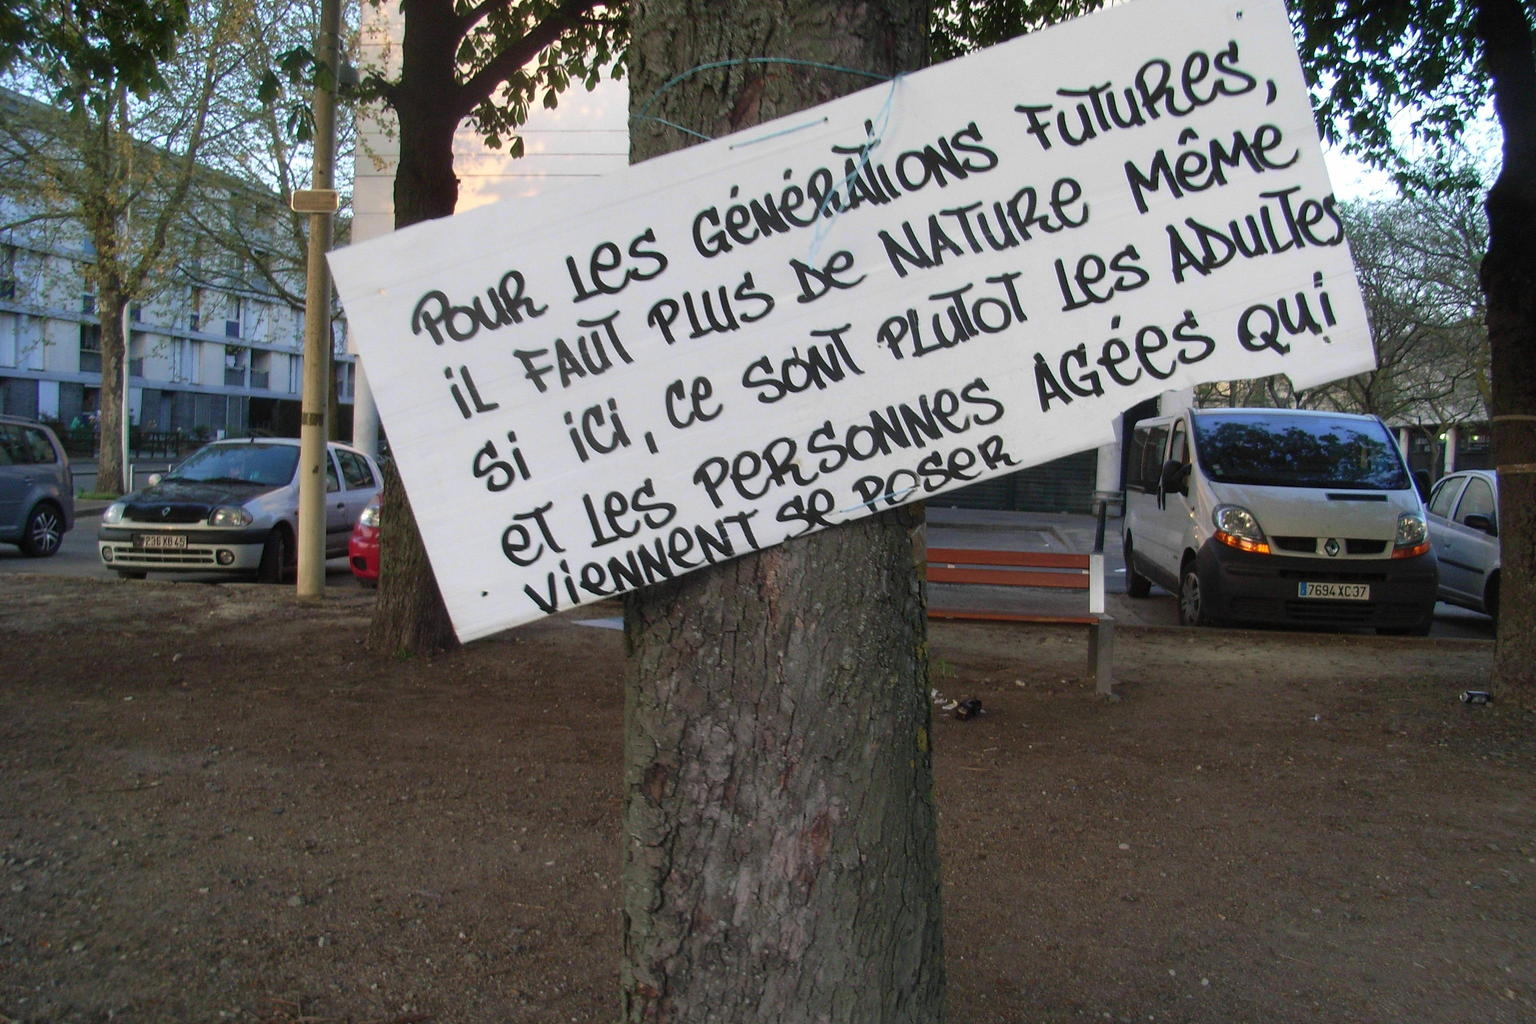 POUR LES GÉNÉRATIONS FUTURES,
iL FAUT PLUS DE NATURE MÊME
Si iCi, CE SONT PLUTOT LES ADULTES
ET LES PERSONNES AGÉES QUi
ViENNENT SE POSER
236 XB 45
7694 XC 37